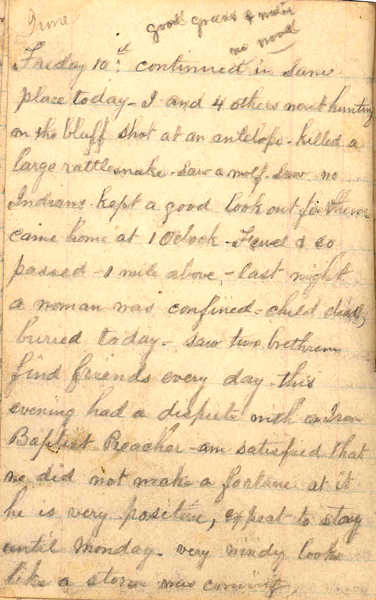 June
good grass & water
no wood
Friday 10th continued in same
place today - I and 4 others went hunting
on the bluff shot at an antelope - killed a
large rattlesnake - Saw a wolf. Saw no
Indians - kept a good look out for them
came home at 1 Oclock -
passed - 1 mile above, - last night
a woman was confined - child died,
buried today - saw two brethren
find friends every day - this
evening had a dispute with an Iron
Baptist Preacher - am satisfied that
he did not make a fortune at it
he is very positive, expect to stay
until Monday - very windy looks
like a storm was coming,